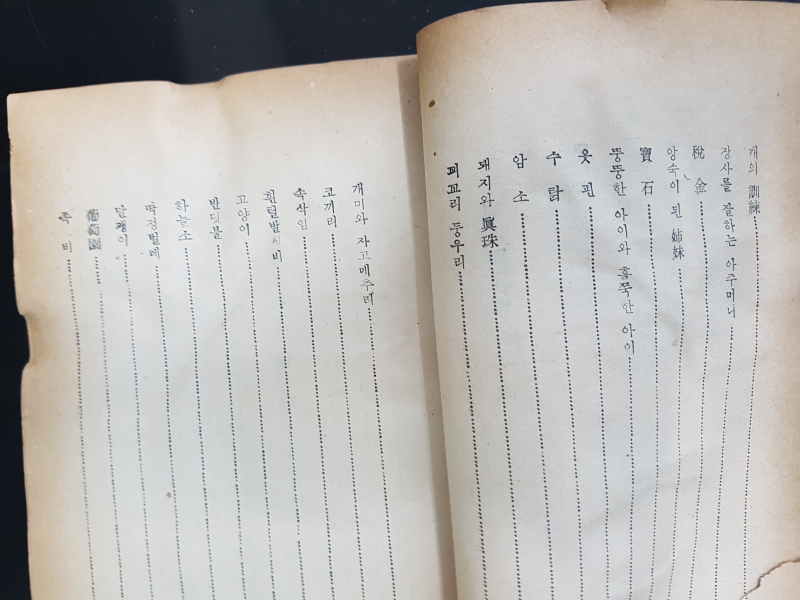 개의 訓練
장사를 잘하는 아주머니
稅金
앙숙이 된 姉妹
寶石
뚱뚱한 아이와 홀쭉한 아이
윳편
수탉
암소
돼지와 眞珠
꾀꼬리 둥우리
개미와 자고메추래
코끼리
속삭임
흰털발제비
고양이
반딧불
하늘소
딱정벌레
달팽이
葡萄園
족비